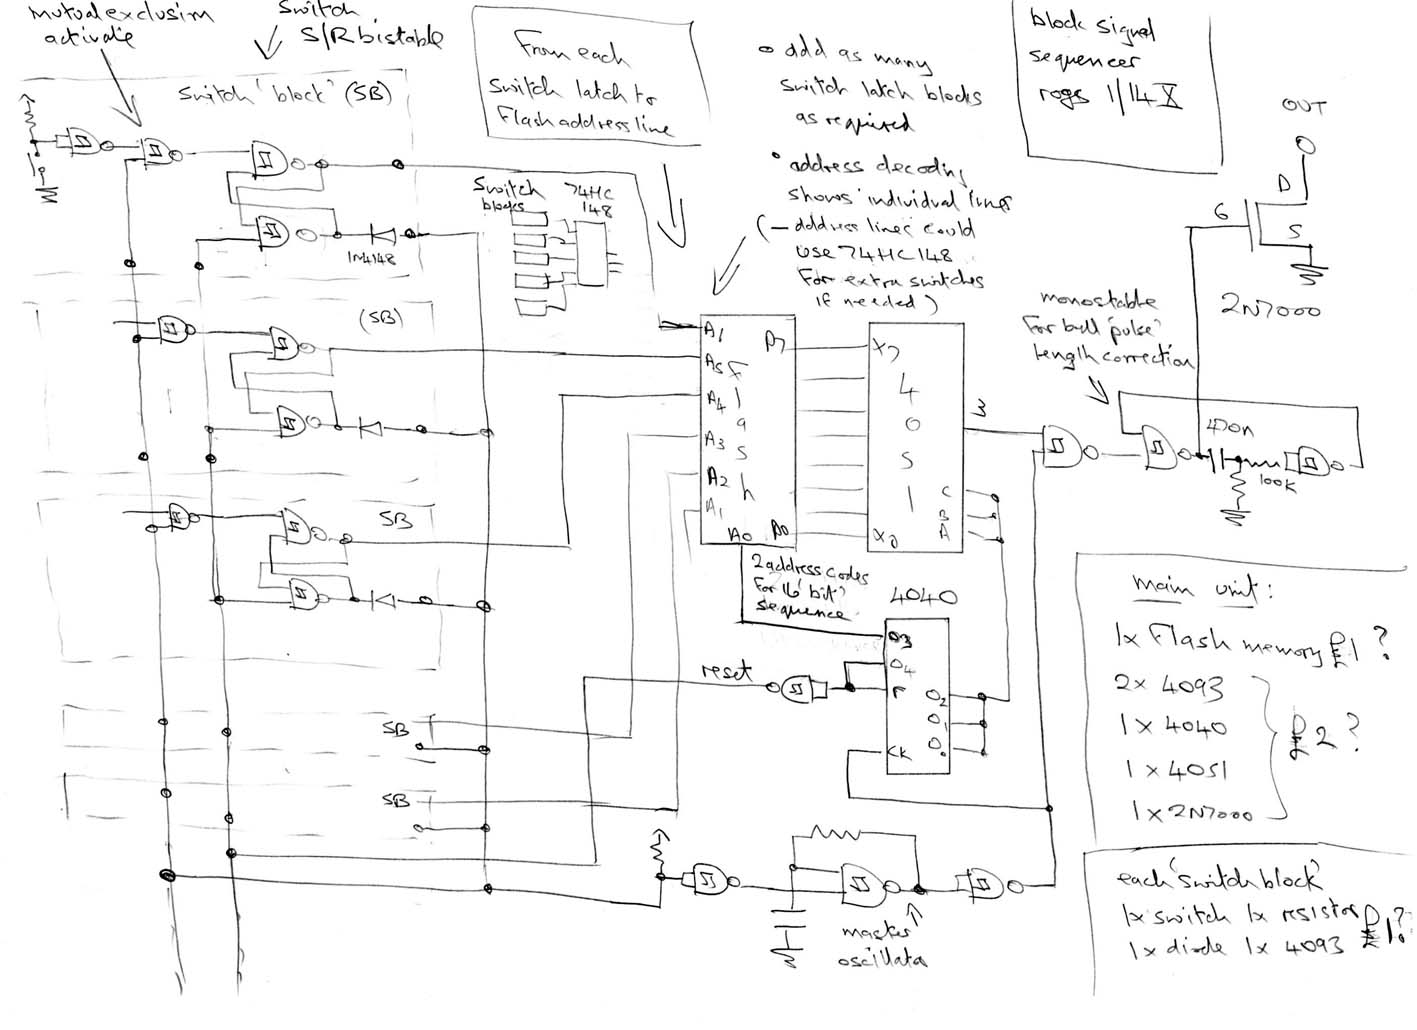 mutual exclusion
activate
Switch
S/R bistable
Switch 'block' (SB)
1N4148
(SB)
SB
SB
SB
From each
switch latch to
Flash address line
Switch
blocks
74HC
148
o add as many
switch latch blocks
as required
• address decoding
shows individual lines
(– address lines could
use 74HC148
For extra switches
if needed)
block signal
sequencer
rogs 1/14 X
OUT
D
G
S
2N7000
monostable
For bell 'pulse'
length correction
470n
100K
A1
A5
A4
A3
A2
A1
A0
Flash
D7
D0
X7
4051
X0
C
B
A
3
2 address codes
For '16 bit'
sequence
4040
O3
O4
r
CK
O2
O1
O0
reset
master
oscillator
main unit:
1x Flash memory £1?
2x 4093
1 x 4040
1 x 4051
1 x 2N7000
£2?
each 'switch block'
1x switch 1x resistor
1x diode 1x 4093
£1?